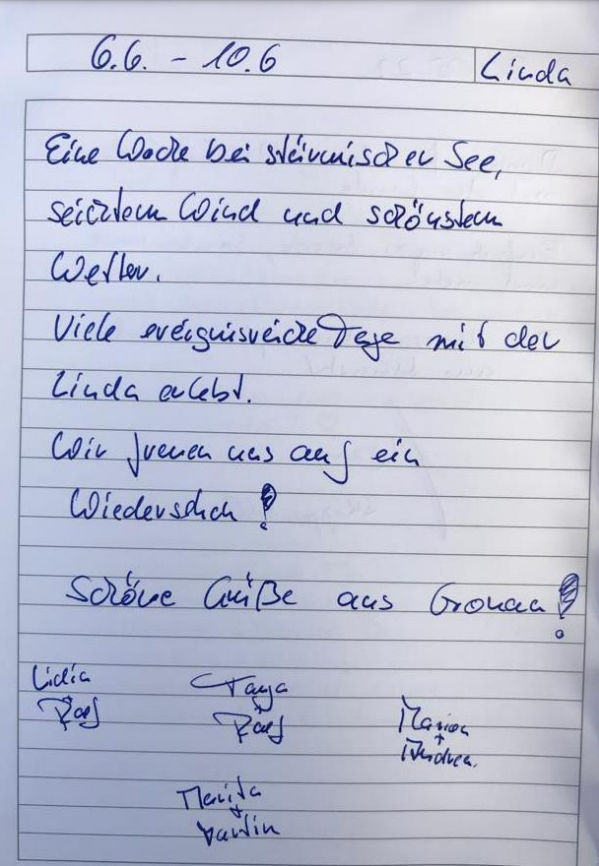 6.6. - 10.6
Linda
Eine Woche bei stürmischer See,
seichtem Wind und schönstem
Wetter.
Viele ereignisreiche Tage mit der
Linda erlebt.
Wir freuen uns auf ein
Wiedersehen!
Schöne Grüße aus Gronau!
Lidia
Ralf
Tanja
+
Ralf
Marion
+
Andrea.
Marita
+